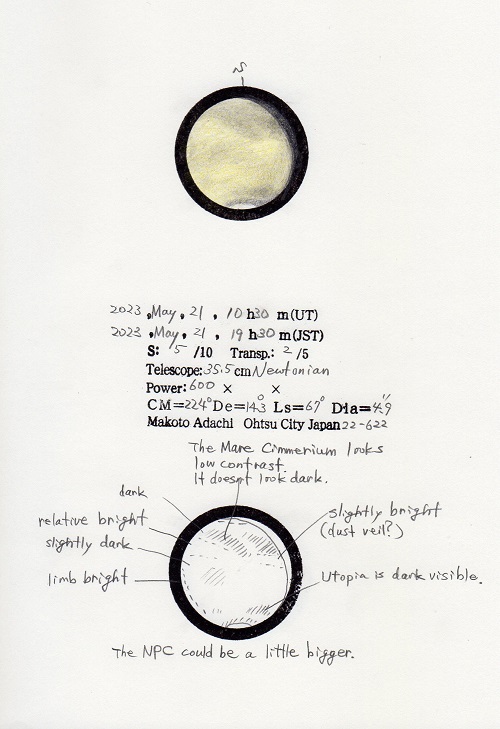 S
2023, May, 21, 10 h30 m(UT)
2023, May, 21, 19 h30 m(JST)
S: 5 /10 Transp.: 2 /5
Telescope: 35.5 cm Newtonian
Power: 600 × ×
CM=224° De=14.3 Ls=67° Dia=4.9"
Makoto Adachi Ohtsu City Japan 22-622
The Mare Cimmerium looks
low contrast.
It doesn't look dark.
dark
relative bright
slightly dark
limb bright
slightly bright
(dust veil?)
Utopia is dark visible.
The NPC could be a little bigger.